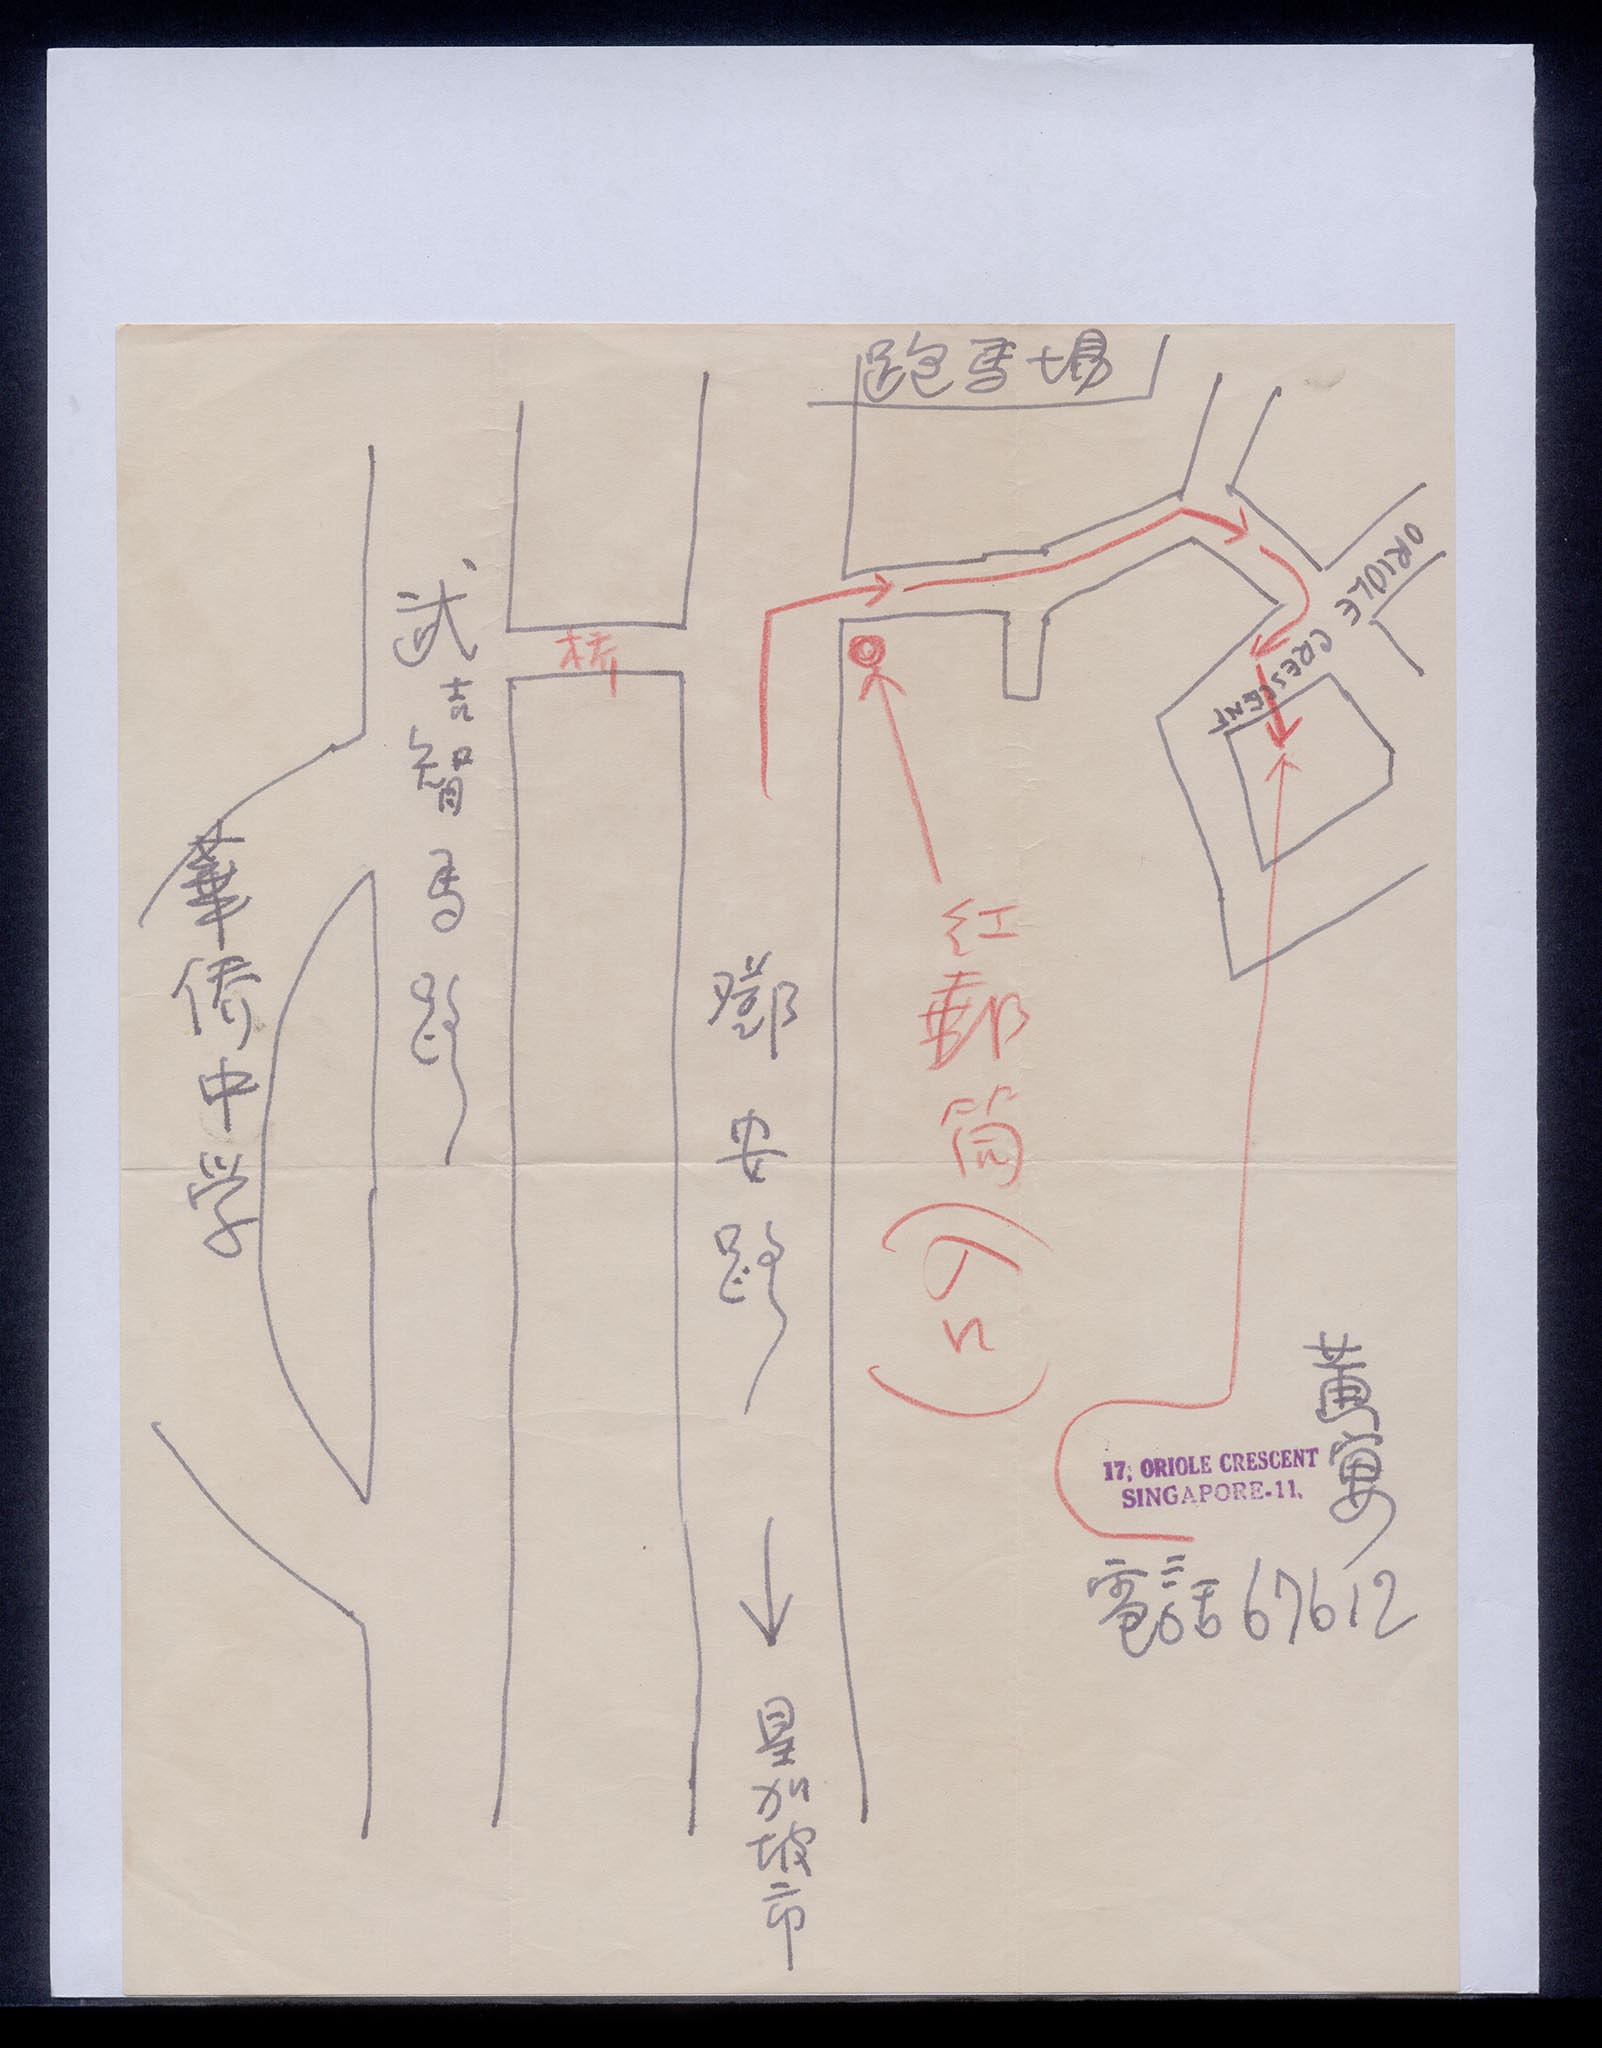 跑馬場
ORIOLE CRESCENT
桥
武吉智馬路
華侨中学
鄧安路
星加坡市
红郵筒(入口)
黃寓
17, ORIOLE CRESCENT
SINGAPORE-11.
電話67612